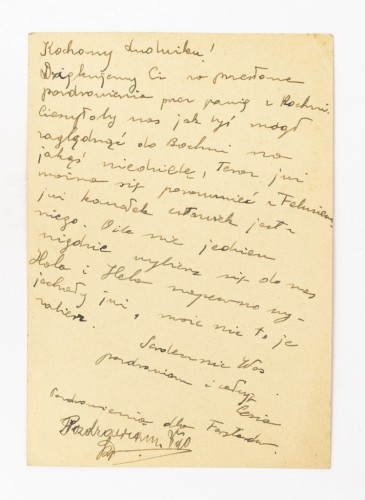 Kochany Ludwiku!
Dziękujemy Ci za przesłane
pozdrowienia przez panią z Bochni.
Cieszyłoby nas jak byś mógł
zaglądnąć do Bochni na
jakąś niedzielę, Teraz już
można się porozumieć z
już kawałek człowiek jest z
niego. O ile nie jedziem
nigdzie wybierz się do nas
Hala i Hela napewno wy-
jechały już, może nie to je
zabierz.
Serdecznie Was
pozdrawiam i całuję
pozdrowienia dla
Pozdrawiam